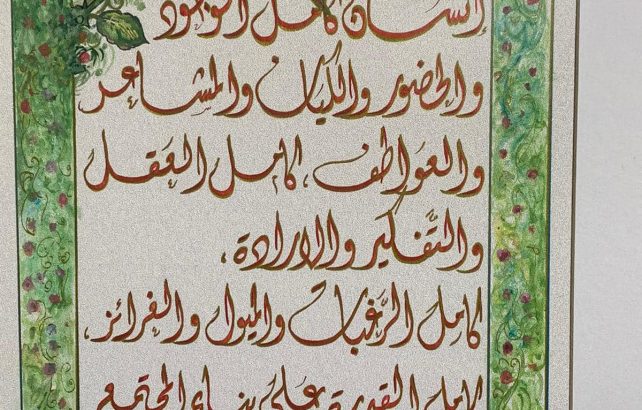 إنسان كامل الوجود
والحضور والكيان والمشاعر
والعواطف، كامل العقل
والتَّفكير والإرادة،
كامِل الرَّغبات والميول والغرائز،
كامل القدرة على بناء المجتمع